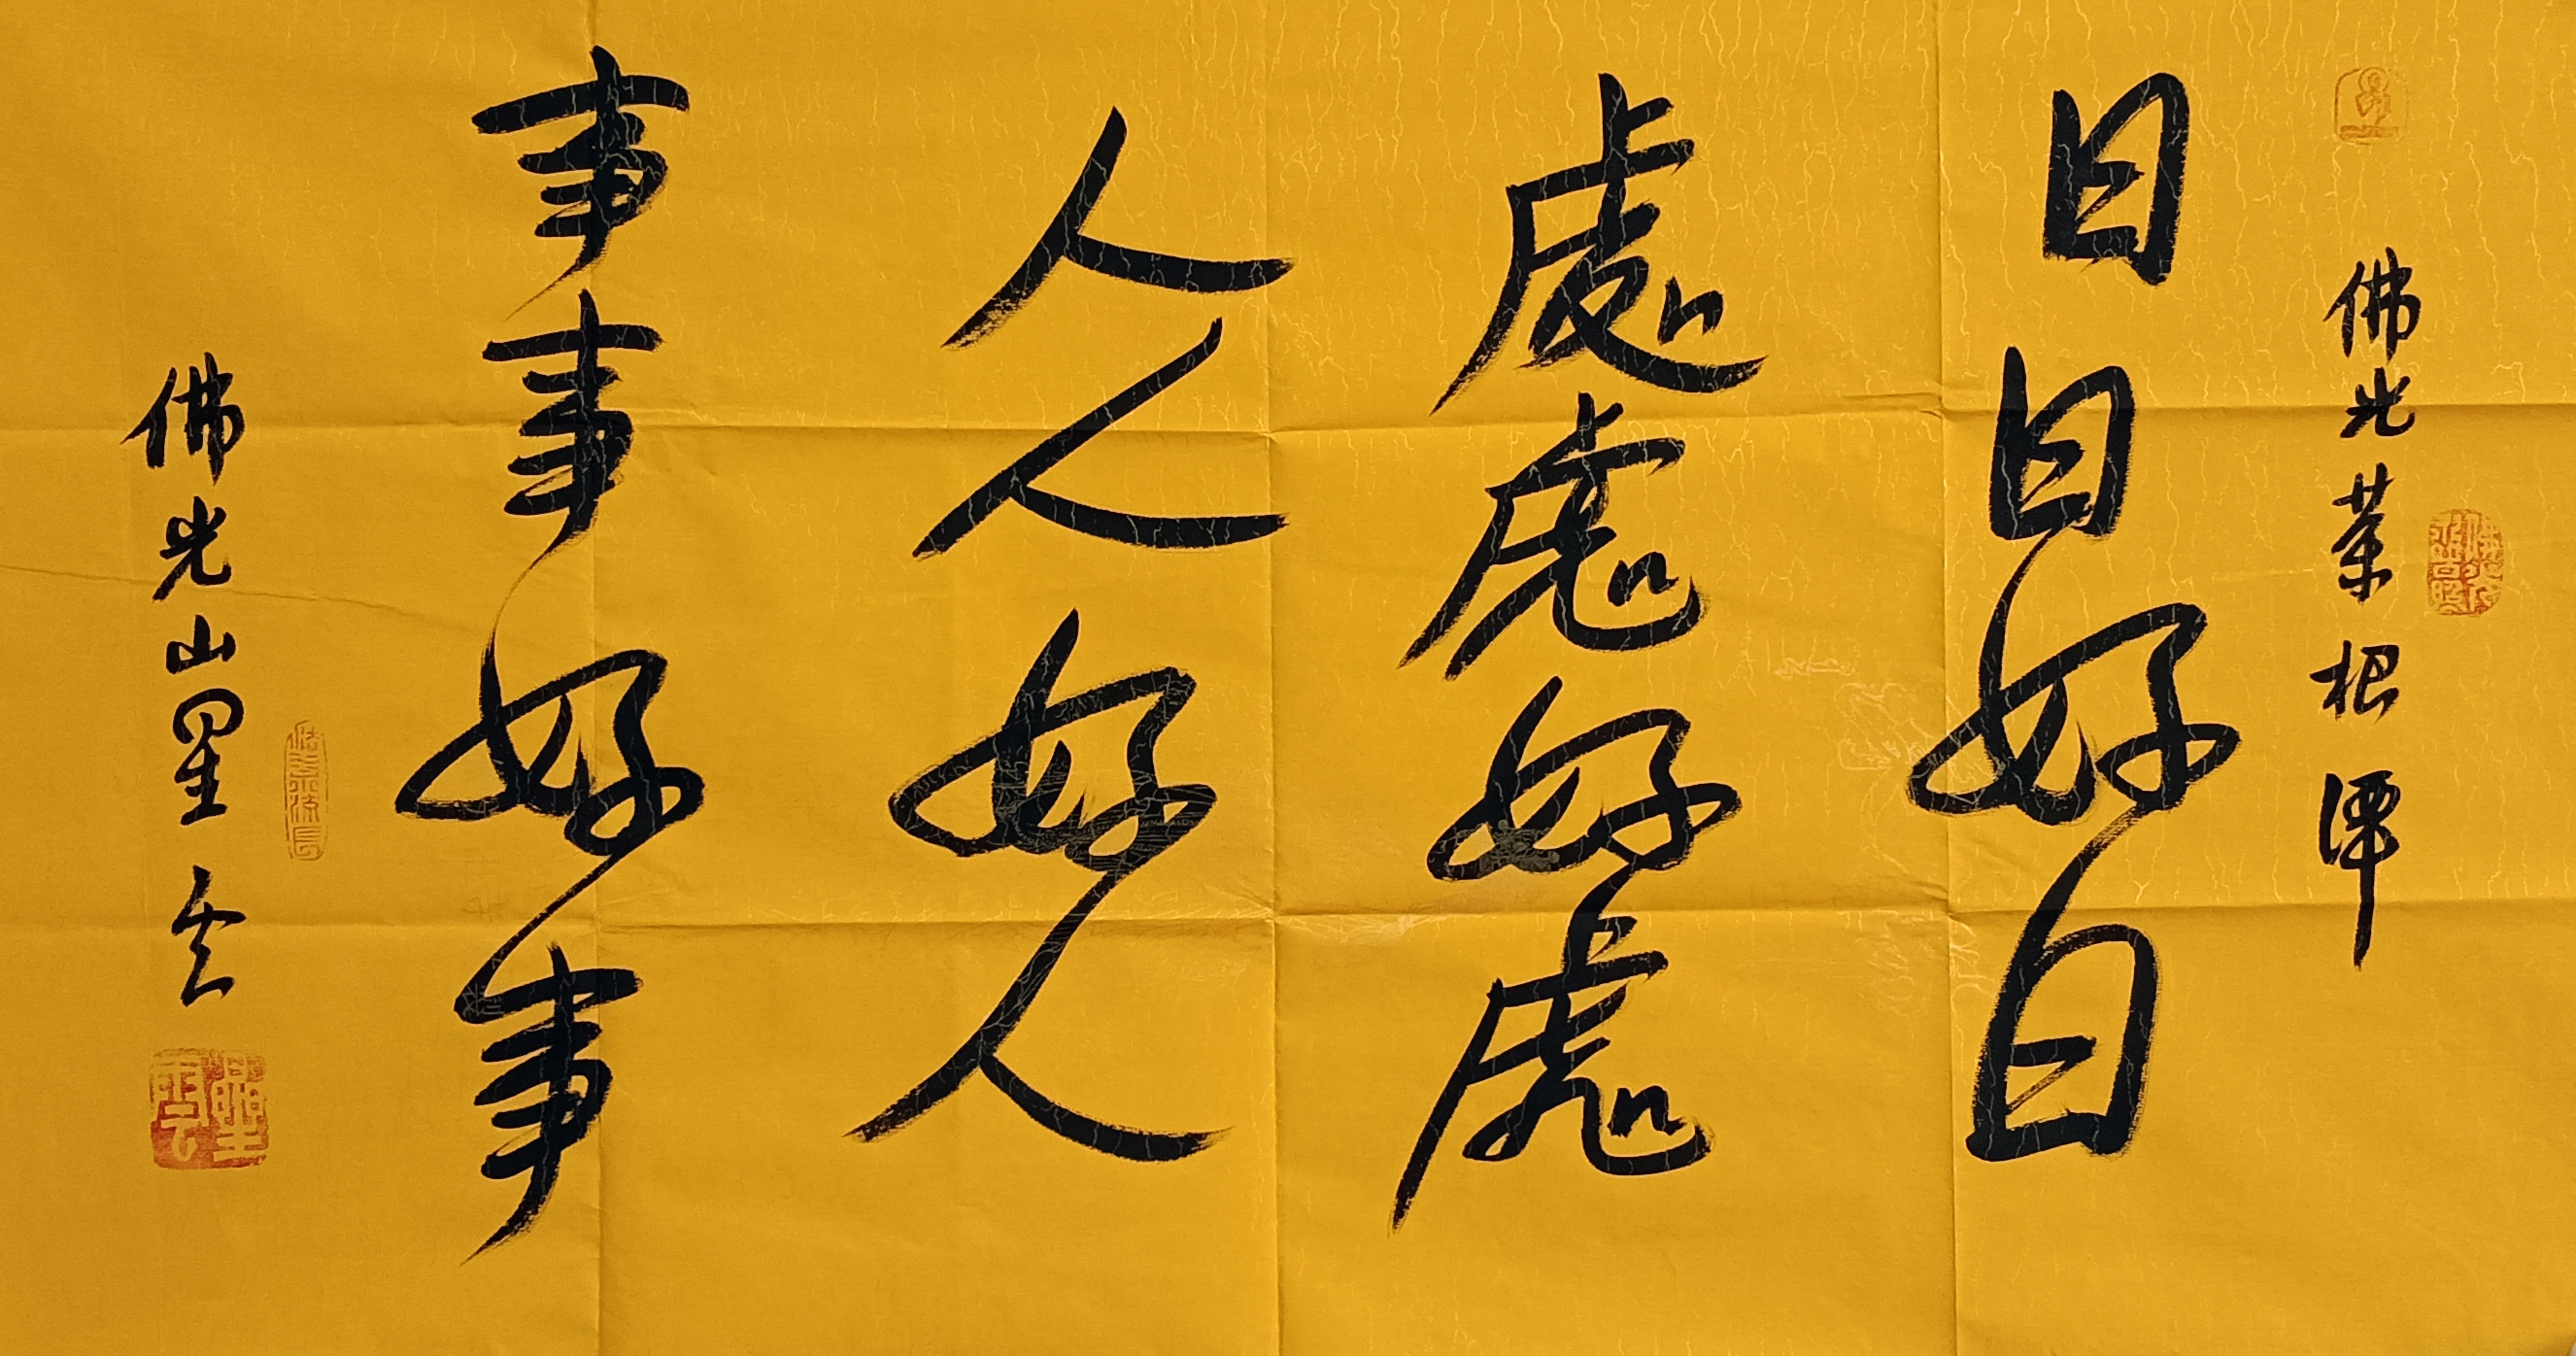 佛光菜根譚
日日好日
處處好處
人人好人
事事好事
佛光山星云
星雲